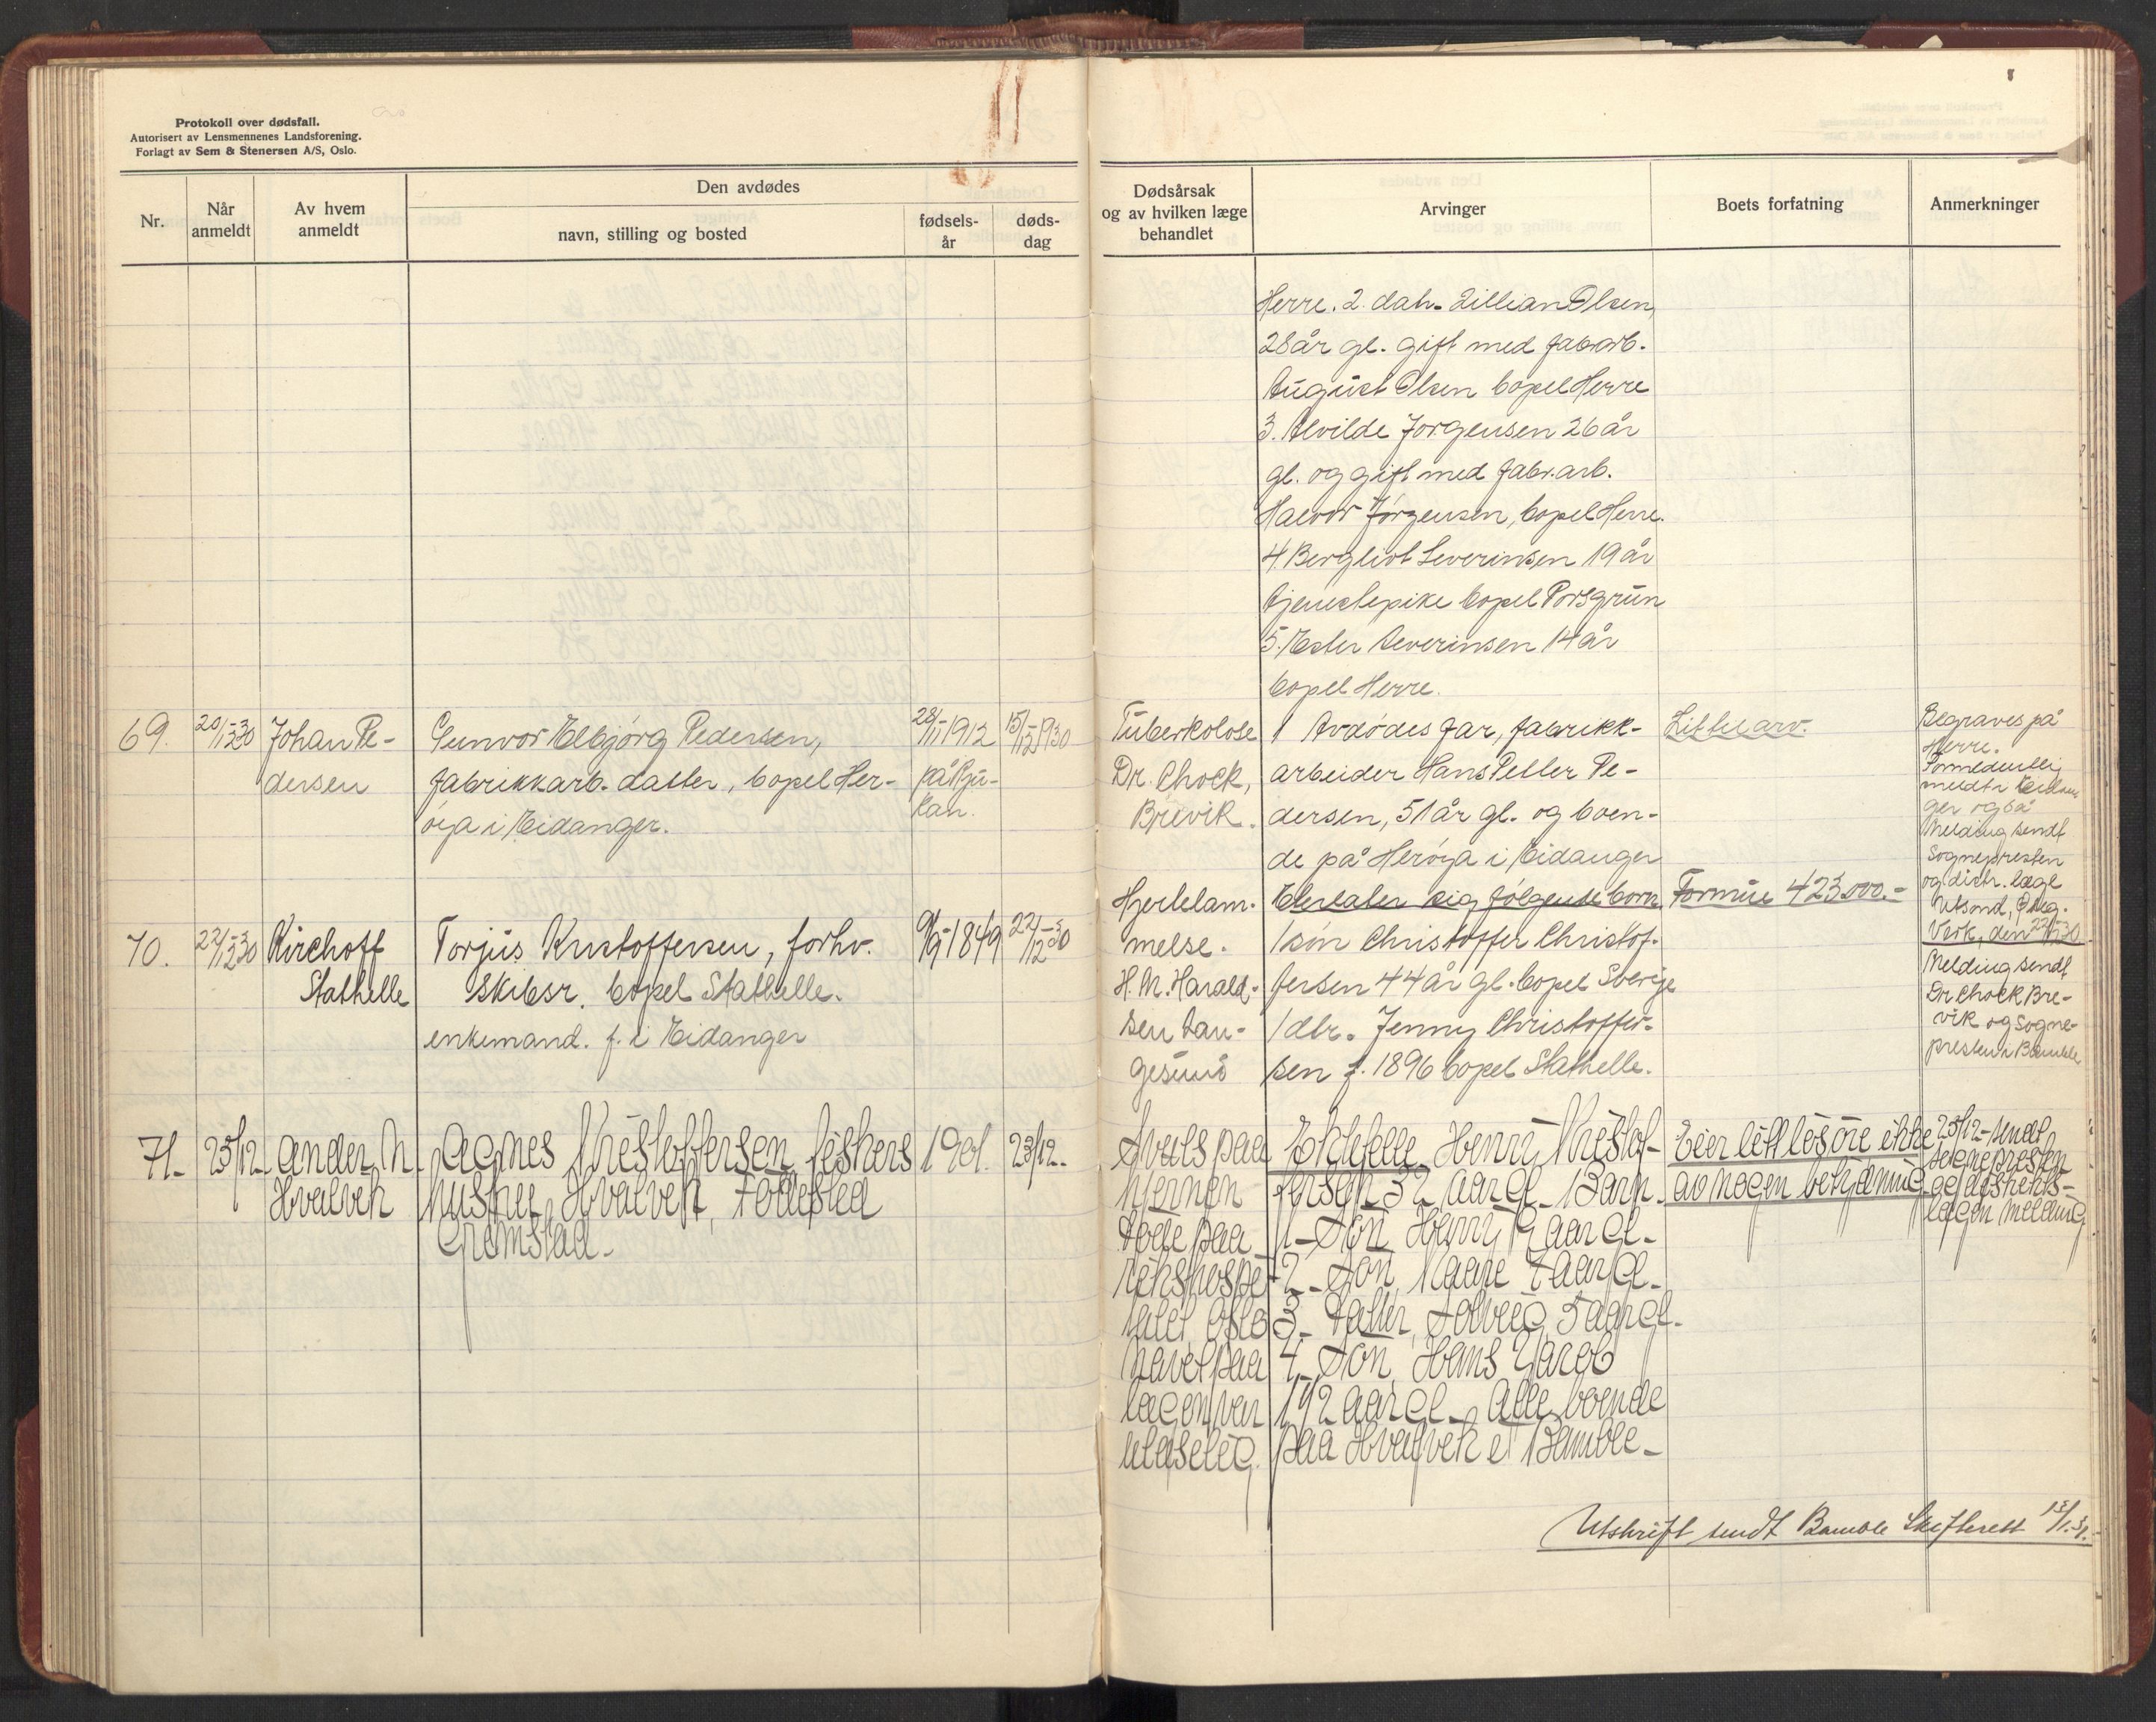 Protokoll over dødsfall.
Autorisert av Lensmennenes Landsforening.
Forlagt av Sem & Stenersen A/S, Oslo.
Nr.
Når anmeldt
Av hvem anmeldt
Den avdødes
navn, stilling og bosted
fødsels-
år
døds-
dag
Dødsårsak
og av hvilken læge
behandlet
Arvinger
Boets forfatning
Anmerkninger
Herre. 2. datr. Lillian Olsen,
28 år gl. gift med fabrarb.
August Olsen bopel Herre
3. Alvilde Jørgensen 26 år
gl. og gift med fabr.arb.
Halvor Jørgensen, bopel Herre.
4. Bergliot Severinsen 19 år
tjenestepike bopel Porsgrun
5. Ester Severinsen 14 år
bopel Herre.
69.
20/12-30
Johan Pe-
dersen
Gunvor Elbjørg Pedersen,
fabrikkarb. datter, bopel Her-
øya i Eidanger.
28/11 1912
på Rju-
kan.
15/12 1930
Tuberkolose
Dr. Chock,
Brevik.
1 Avdødes far, fabrikk-
arbeider Hans Petter Pe-
dersen, 51 år gl. og boen-
de på Herøya i Eidanger
Litt arv.
Begraves på
Herre.
ger også
Melding sendt
Sognepresten
og distr. læge
Verk, den
70.
22/12-30
Kirchoff
Stathelle
Torjus Kristoffersen, forhv.
Skibsr. bopel Stathelle.
enkemand. f. i Eidanger
9/9-1849
22/12-30
Hjertelam-
melse.
H. M. Harald-
sen Lan-
gesund
Eterlater sig følgende barn
1 søn Christoffer Christof-
fersen 44 år gl. bopel Sverige
1 dtr. Jenny Christoffer-
sen f. 1896 bopel Stathelle.
Formue 423.000.-
Melding sendt
Dr Chock Bre-
vik og Sogne-
presten i Bamble
71-
23/12-
Ander N.
Hvalvek
Agnes Kristoffersen fiskers
hustru Hvalvek, Fødested
Grimstad-
1901.
23/12-
Svuls paa
hjernen
døde paa
rikshospi-
talet Oslo
Navet paa
lægen var
utaselig.
Ektefelle Henry Kristof-
fersen 32 aar gl- Barn-
1- Søn Henry 9 aar gl-
2- Søn, Kaare 7 aar gl-
3- Datter, Solveig, 5 aar gl-
4- Søn, Hans Jacob
1 1/2 aar gl- Alle boende
paa Hvalvek i Bamble-
Eier litt løsøre ikke
av nogen betydning
23/12- sendt
sognepresten
og distrikts-
lægen melding
Utskrift sendt Bamble Skifterett 13/1-31.